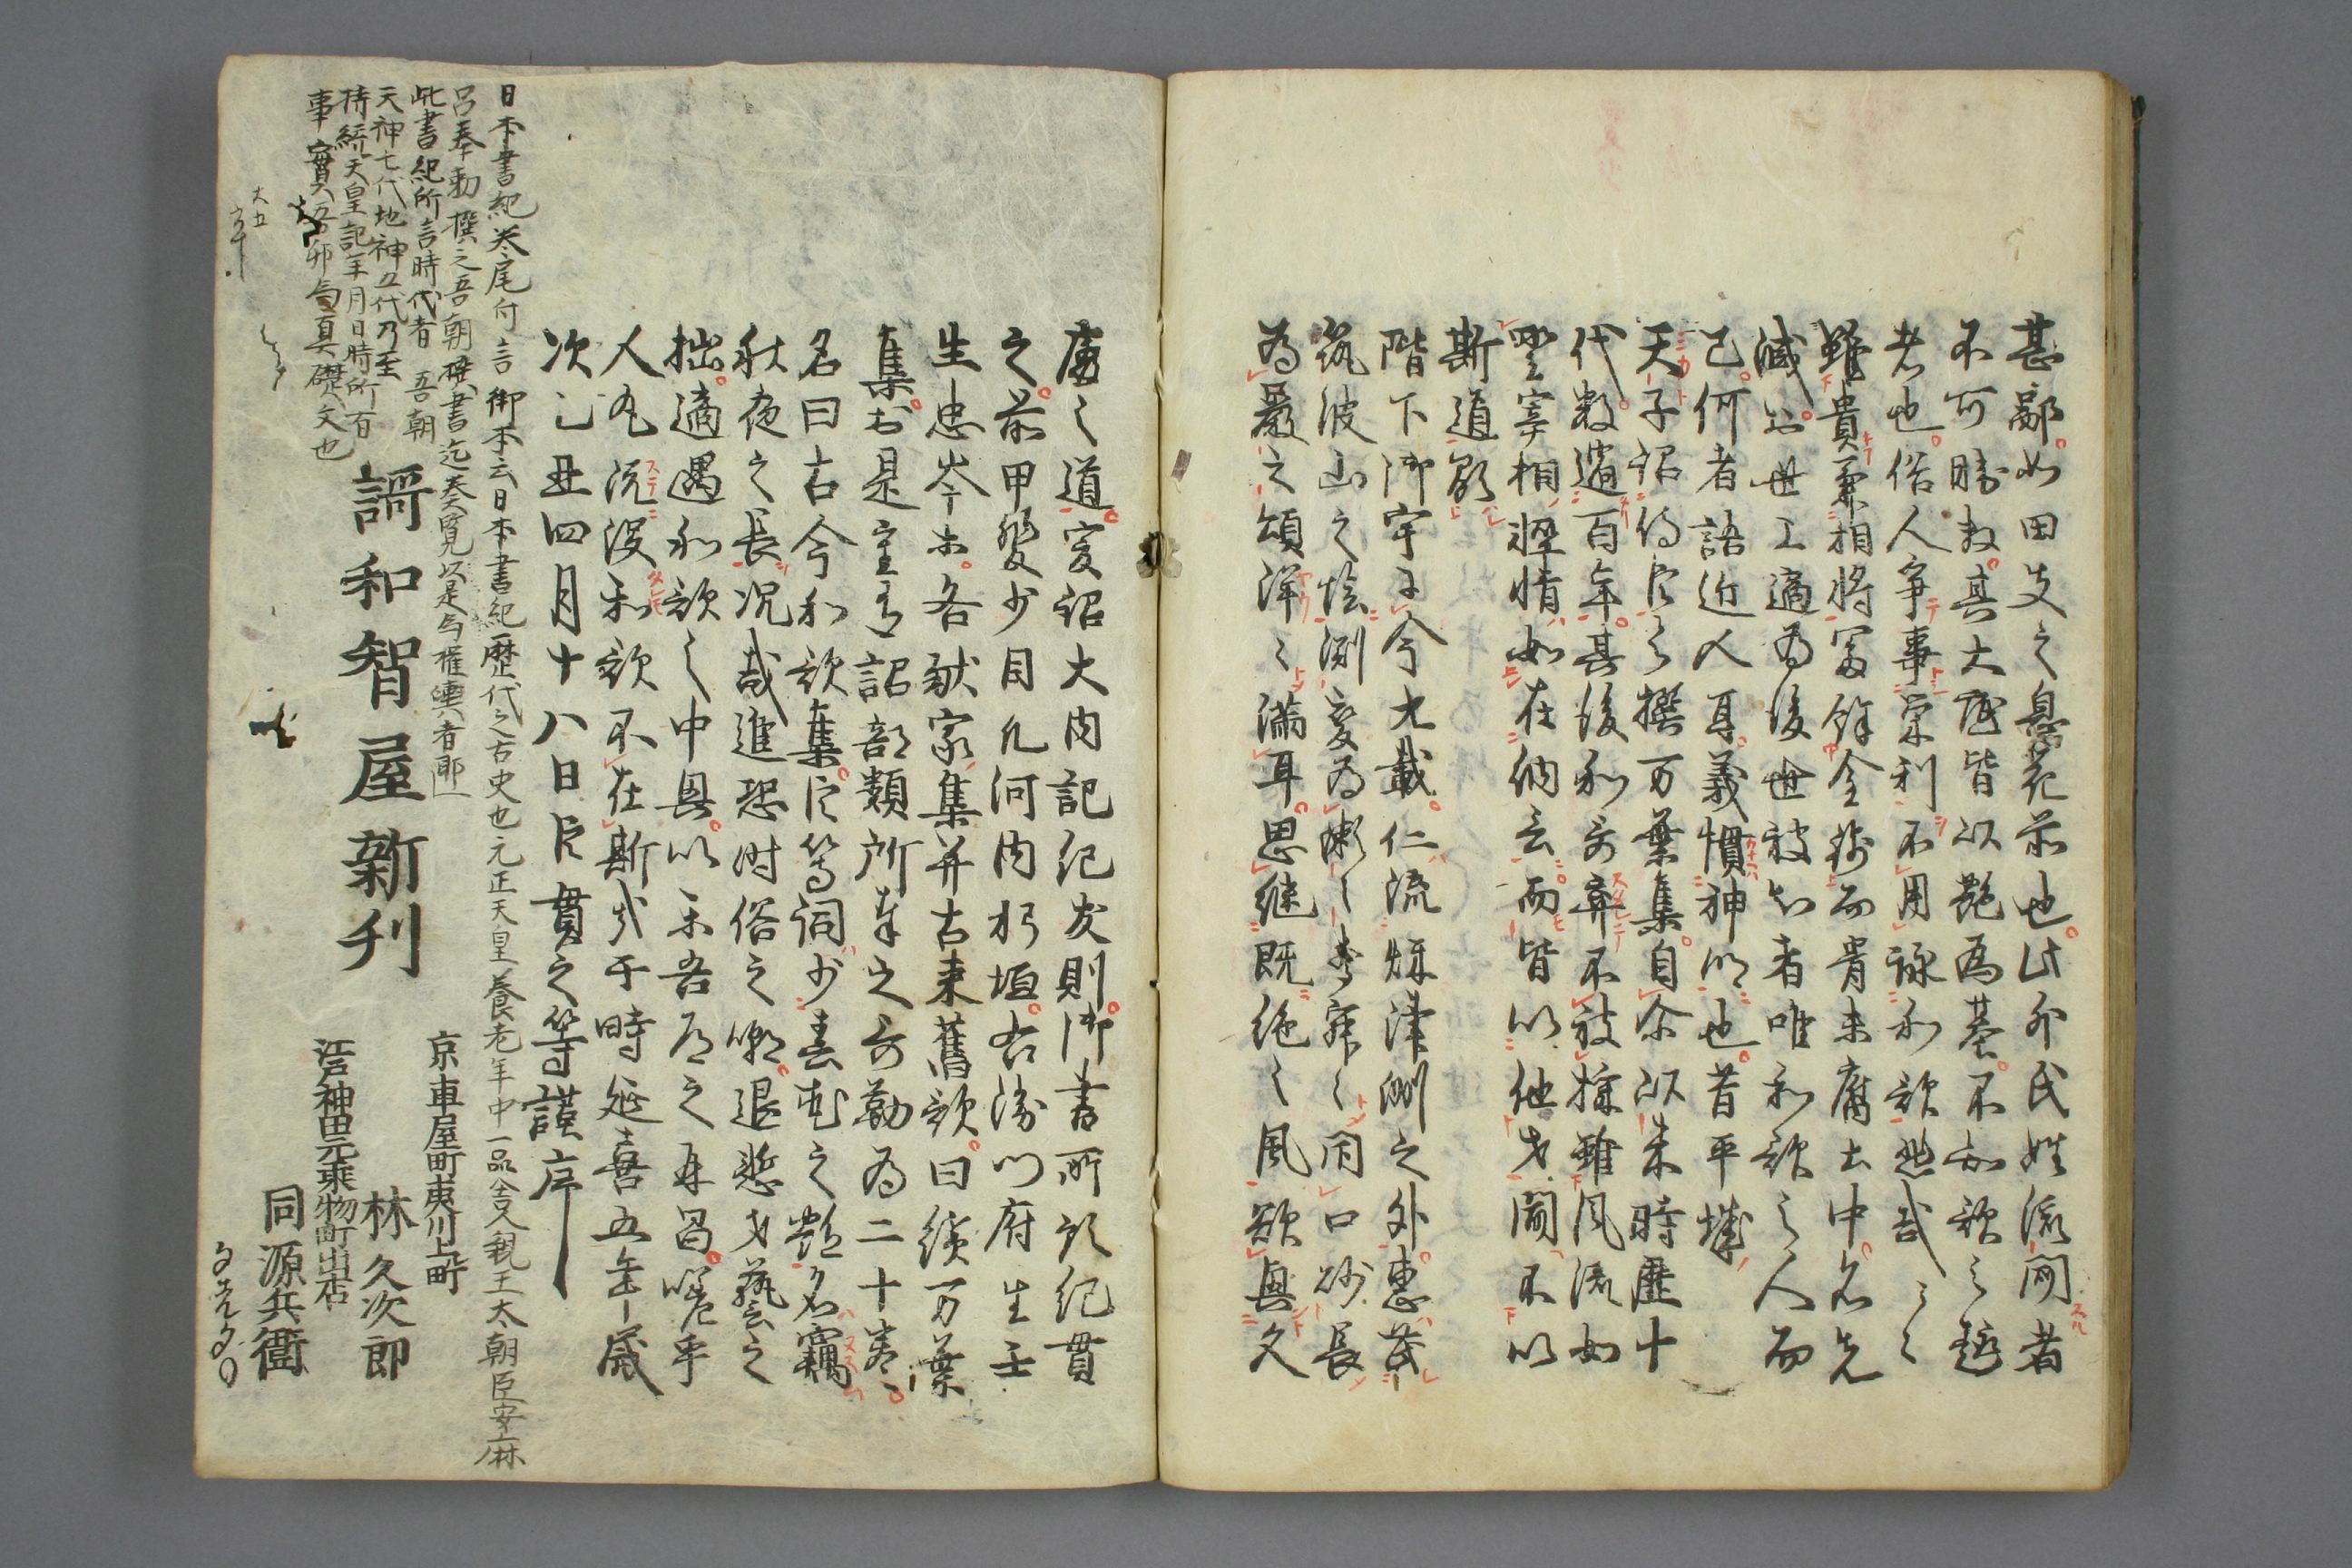 甚鄙如田夫之息花前也此外氏姓流聞者
不可勝数其大底皆以艶為基不知歌之趣
者也俗人争事栄利不用詠和歌悲哉〻〻
雖貴兼相将冨餘金銭而骨未腐土中名先
滅於世上適為後世被知者唯和歌之人而
已何者語近人耳義慣神明也昔平城
天子詔侍臣令撰万葉集自尓以来時歴十
代数過百年其後和哥弃不被採雖風流如
野宰相輕情如在納言而皆以他才聞不以
斯道顕
階下御宇于今九載仁流秋津洲之外恵茂
筑波山之陰渕変為瀬之声寂〻閇口砂長
為巌之頌洋〻満耳思継既絶之風欲興久
廃之道爰詔大内記紀友則御書所預紀貫
之前甲斐少目凡河内躬垣右衛門府生壬
生忠岑等各献家集并古来舊歌曰続万葉
集於是重有詔部類所奉之哥勒為二十巻
名曰古今和歌集臣等詞少春花之艶名竊
秋夜之長況哉進恐時俗之嘲退慙才藝之
拙適遇和歌之中興以楽吾道之再昌嗟乎
人丸既没和歌不在斯哉于時延喜五年歳
次乙丑四月十八日臣貫之等謹序
日本書紀巻尾付言御本云日本書紀歴代之古史也元正天皇養老年中一品舎人親王太朝臣安麻
呂奉勅撰之吾朝礎書迄奏覧以是为権輿者耶
此書紀所言時代者吾朝
天神七代地神五代乃至
持統天皇記年月日時所有
事實
謌和智屋新刊
京車屋町夷川上町
林久次郎
江戸神田元乘物町出店
同源兵衞